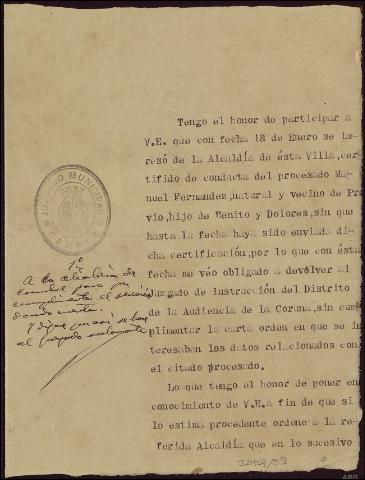 Tengo el honor de participar a
V.E. que con fecha 18 de Enero se in-
resó de la Alcaldía de ésta Villa,cer-
tifido de conducta del procesado Ma-
nuel Fernandez,natural y vecino de Pra
vio,hijo de Benito y Dolores,sin que
hasta la fecha haya sido enviada di-
cha certificación,por lo que con ésta
fecha me véo obligado a devólver al
Juzgado de Instrucción del Distrito
de la Audiencia de la Coruña,sin cum
plimentar la carta orden en que se in
teresaban los datos relacionados con
el citado procesado.
Lo que tengo el honor de poner en
conocimiento de V.E.a fin de que si
lo estima procedente ordene a la re-
ferida Alcaldía que en lo sucesivo
JUZGADO MUNICIPAL
1º
A la alcaldia de
para su
el servicio
32424/53
3
ARG